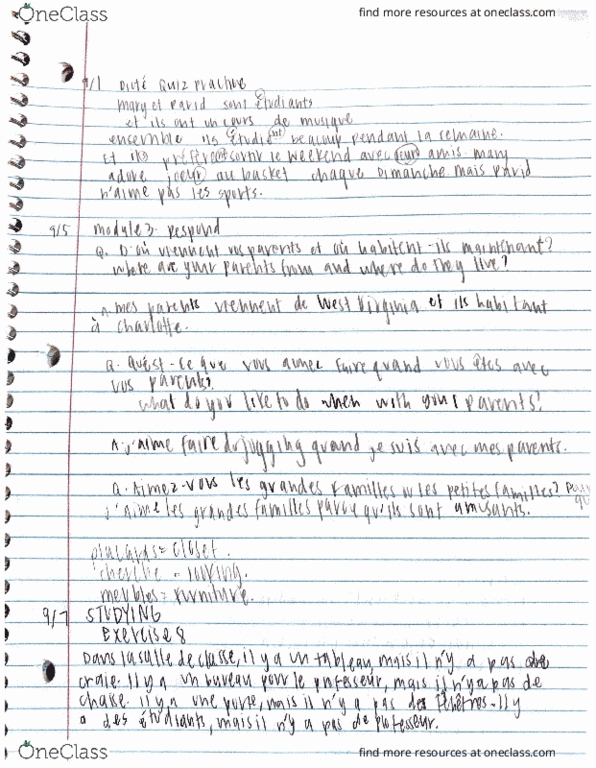 OneClass
find more resources at oneclass.com
9/1 Dicté Quiz Practice
mary et David sont étudiants
et ils ont un cours de musique
ensemble ils étudient beacoup pendant la semaine.
Et ils préfèrent sortir le weekend avec leurs amis. mary
adore joeur au basket chaque Dimanche mais David
n'aime pas les sports.
9/5 module 3 respond
Q. D'où viennent vos parents et où habitent-ils maintenant?
where are your parents from and where do they live?
A. mes parents viennent de West Virginia et ils habitant
à charlotte.
Q. Qu'est-ce que vous aimez faire quand vous êtes avec
vos parents?
what do you like to do when with your parents?
A. j'aime faire du jogging quand je suis avec mes parents.
Q. Aimez-vous les grandes familles les petites familles?
j'aime les grandes familles qu'ils sont amusants.
placards = closet.
cherche = looking.
meubles = furniture.
9/7 STUDYING
Exercise 8
Dans la salle de classe, il y a un tableau, mais il n'y a pas de
craie. Il y a un bureau pour le professeur, mais il n'y a pas de
chaise. il y a une porte, mais il n'y a pas des fenêtres. Il y
a des étudiants, mais il n'y a pas de professeur.
OneClass
find more resources at oneclass.com